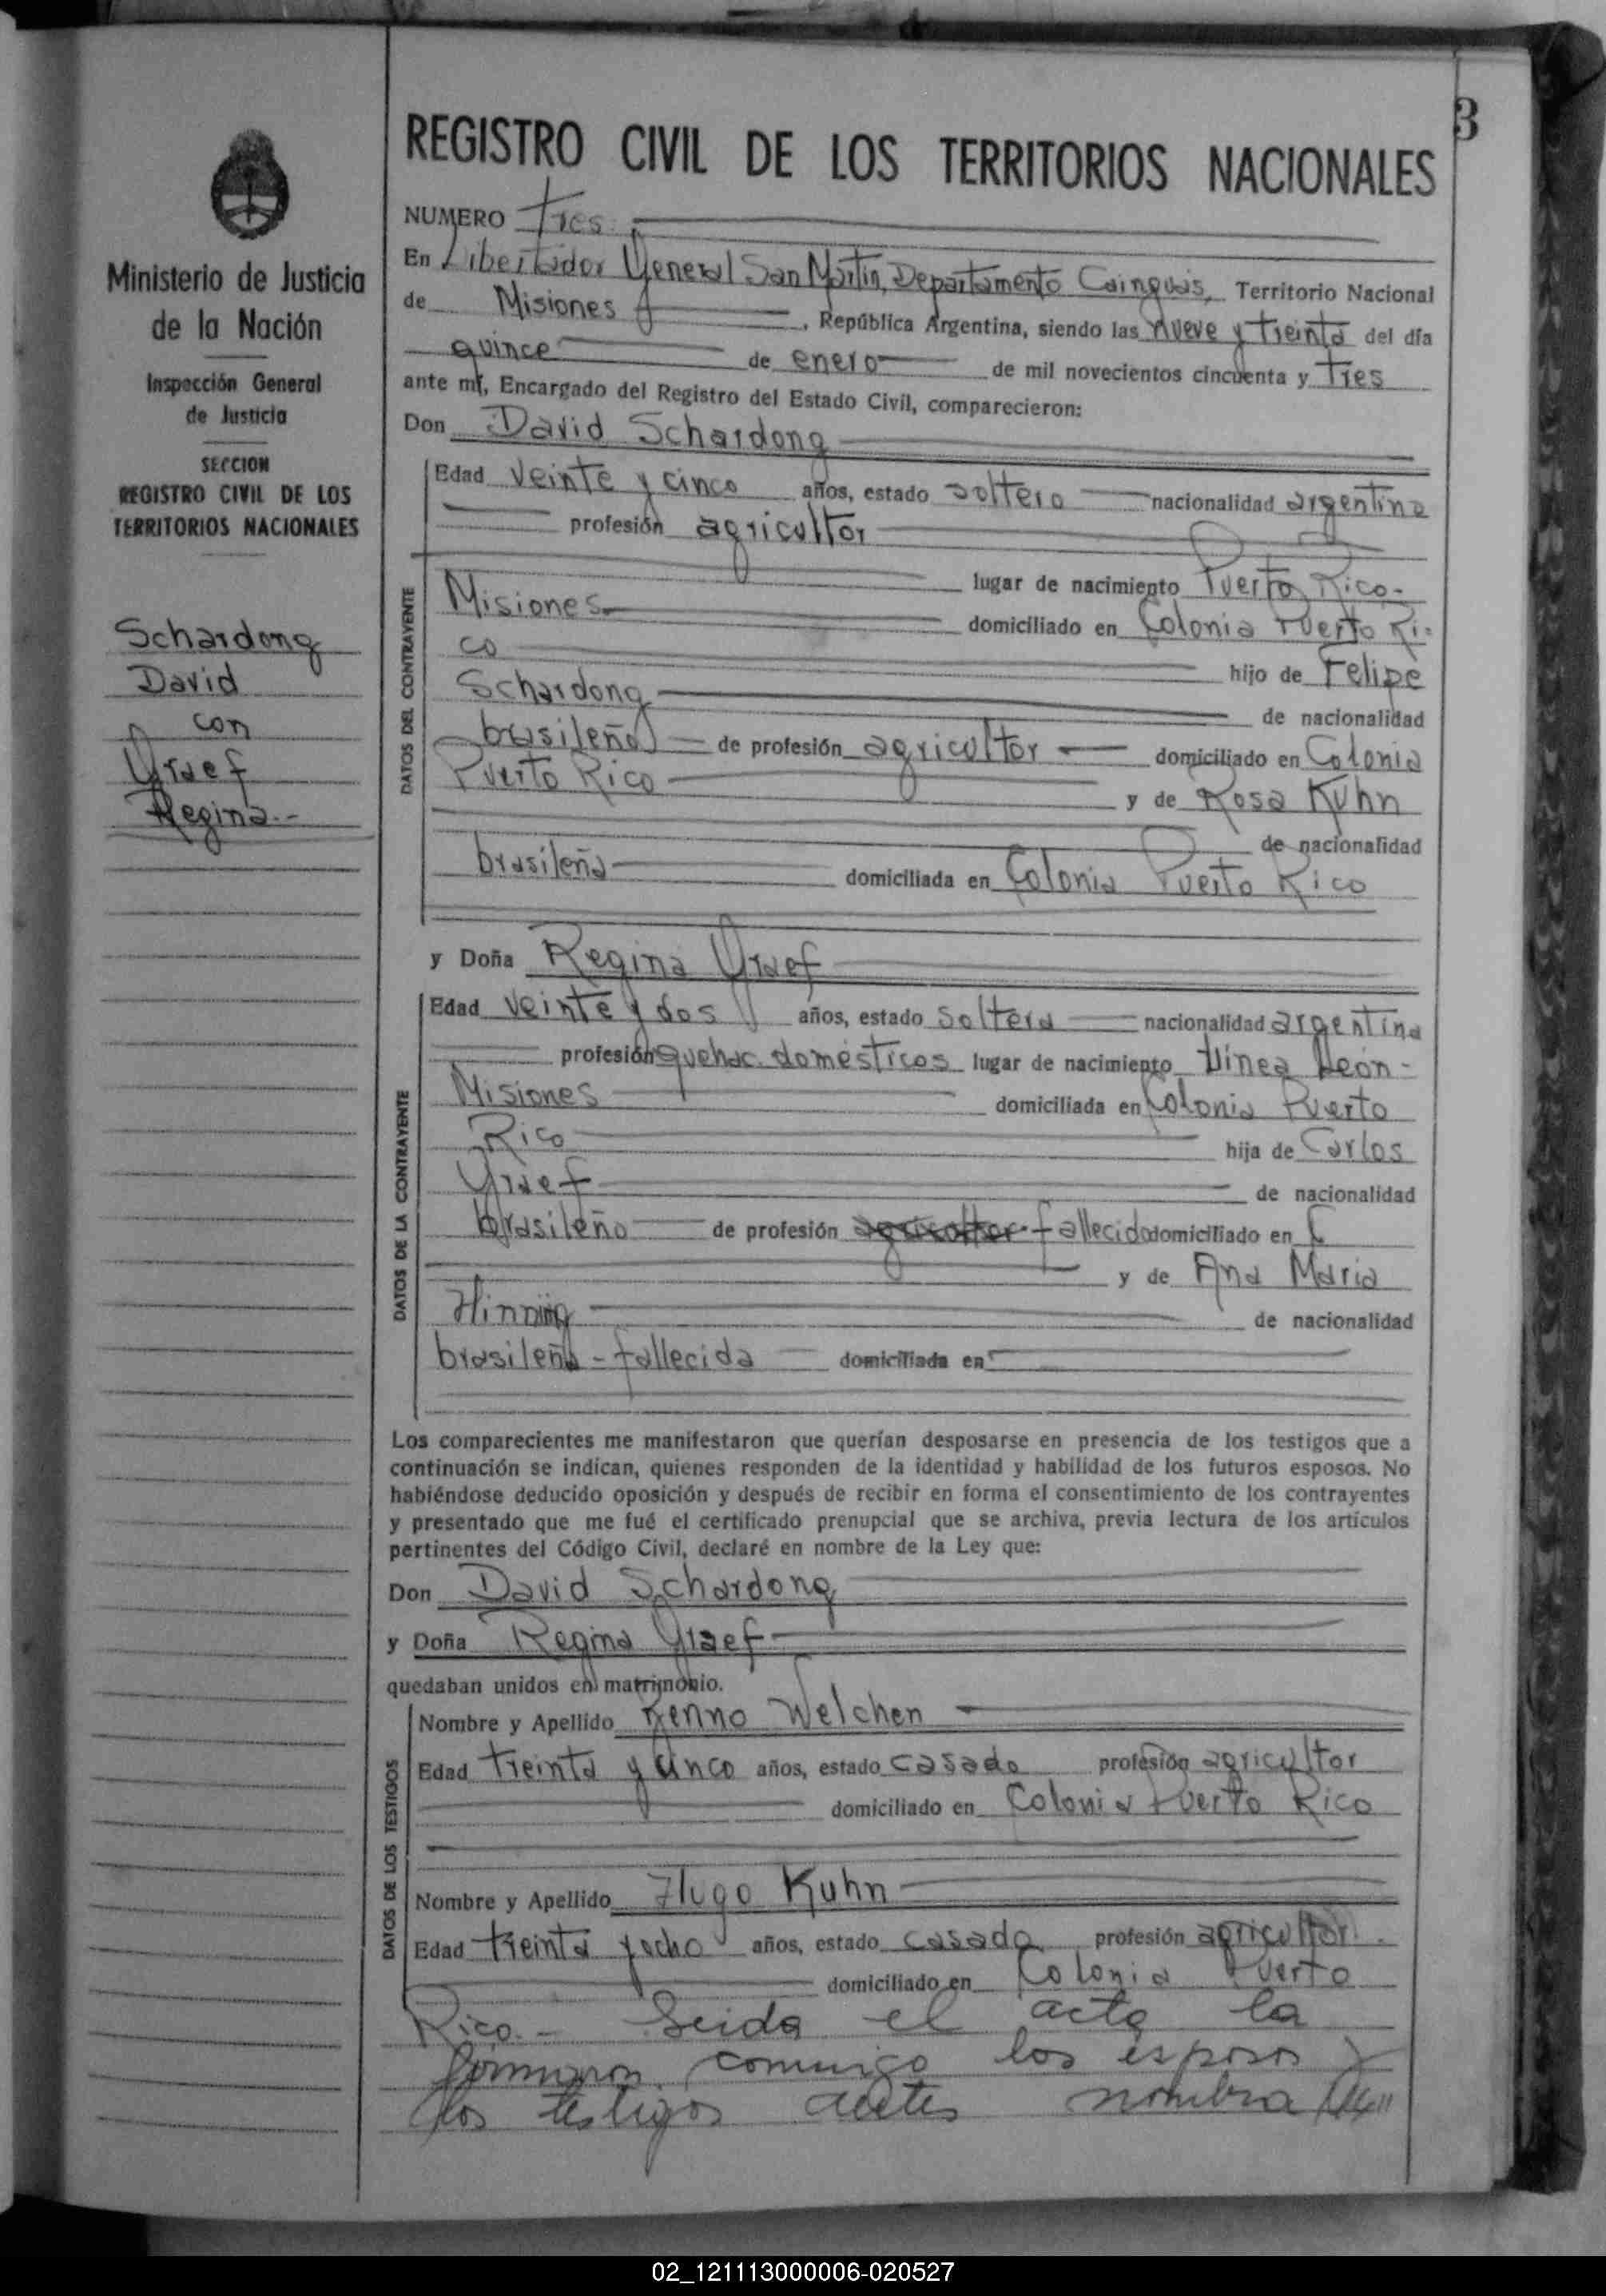 3
REGISTRO CIVIL DE LOS TERRITORIOS NACIONALES
Ministerio de Justicia
de la Nación
Inspección General
de Justicia
SECCION
REGISTRO CIVIL DE LOS
TERRITORIOS NACIONALES
Schardong
David
con
Graef
Regina.-
NUMERO tres
En Libertador General San Martín, Departamento Cainguas, Territorio Nacional
de Misiones, República Argentina, siendo las nueve y treinta del día
quince de enero de mil novecientos cincuenta y tres
ante mí, Encargado del Registro del Estado Civil, comparecieron:
Don David Schardong
DATOS DEL CONTRAYENTE
Edad veinte y cinco años, estado soltero nacionalidad argentina
profesión agricultor
lugar de nacimiento Puerto Rico.-
Misiones domiciliado en Colonia Puerto Ri-
co hijo de Felipe
Schardong de nacionalidad
brasileño de profesión agricultor domiciliado en Colonia
Puerto Rico y de Rosa Kuhn
de nacionalidad
brasileña domiciliada en Colonia Puerto Rico
y Doña Regina Graef
DATOS DE LA CONTRAYENTE
Edad veinte y dos años, estado soltera nacionalidad argentina
profesión quehac. domésticos lugar de nacimiento Línea León-
Misiones domiciliada en Colonia Puerto
Rico hija de Carlos
Graef de nacionalidad
brasileño de profesión agricultor fallecido domiciliado en
y de Ana Maria
de nacionalidad
brasileña - fallecida domiciliada en
Los comparecientes me manifestaron que querían desposarse en presencia de los testigos que a
continuación se indican, quienes responden de la identidad y habilidad de los futuros esposos. No
habiéndose deducido oposición y después de recibir en forma el consentimiento de los contrayentes
y presentado que me fué el certificado prenupcial que se archiva, previa lectura de los artículos
pertinentes del Código Civil, declaré en nombre de la Ley que:
Don David Schardong
y Doña Regina Graef
quedaban unidos en matrimonio.
DATOS DE LOS TESTIGOS
Nombre y Apellido Welchen
Edad treinta y cinco años, estado casado profesión agricultor
domiciliado en Colonia Puerto Rico
Nombre y Apellido Hugo Kuhn
Edad treinta y ocho años, estado casado profesión agricultor.
domiciliado en Colonia Puerto
Rico.- Leida el acta la
firmaron comigo los esposos y
los testigos antes nombra
02_121113000006-020527